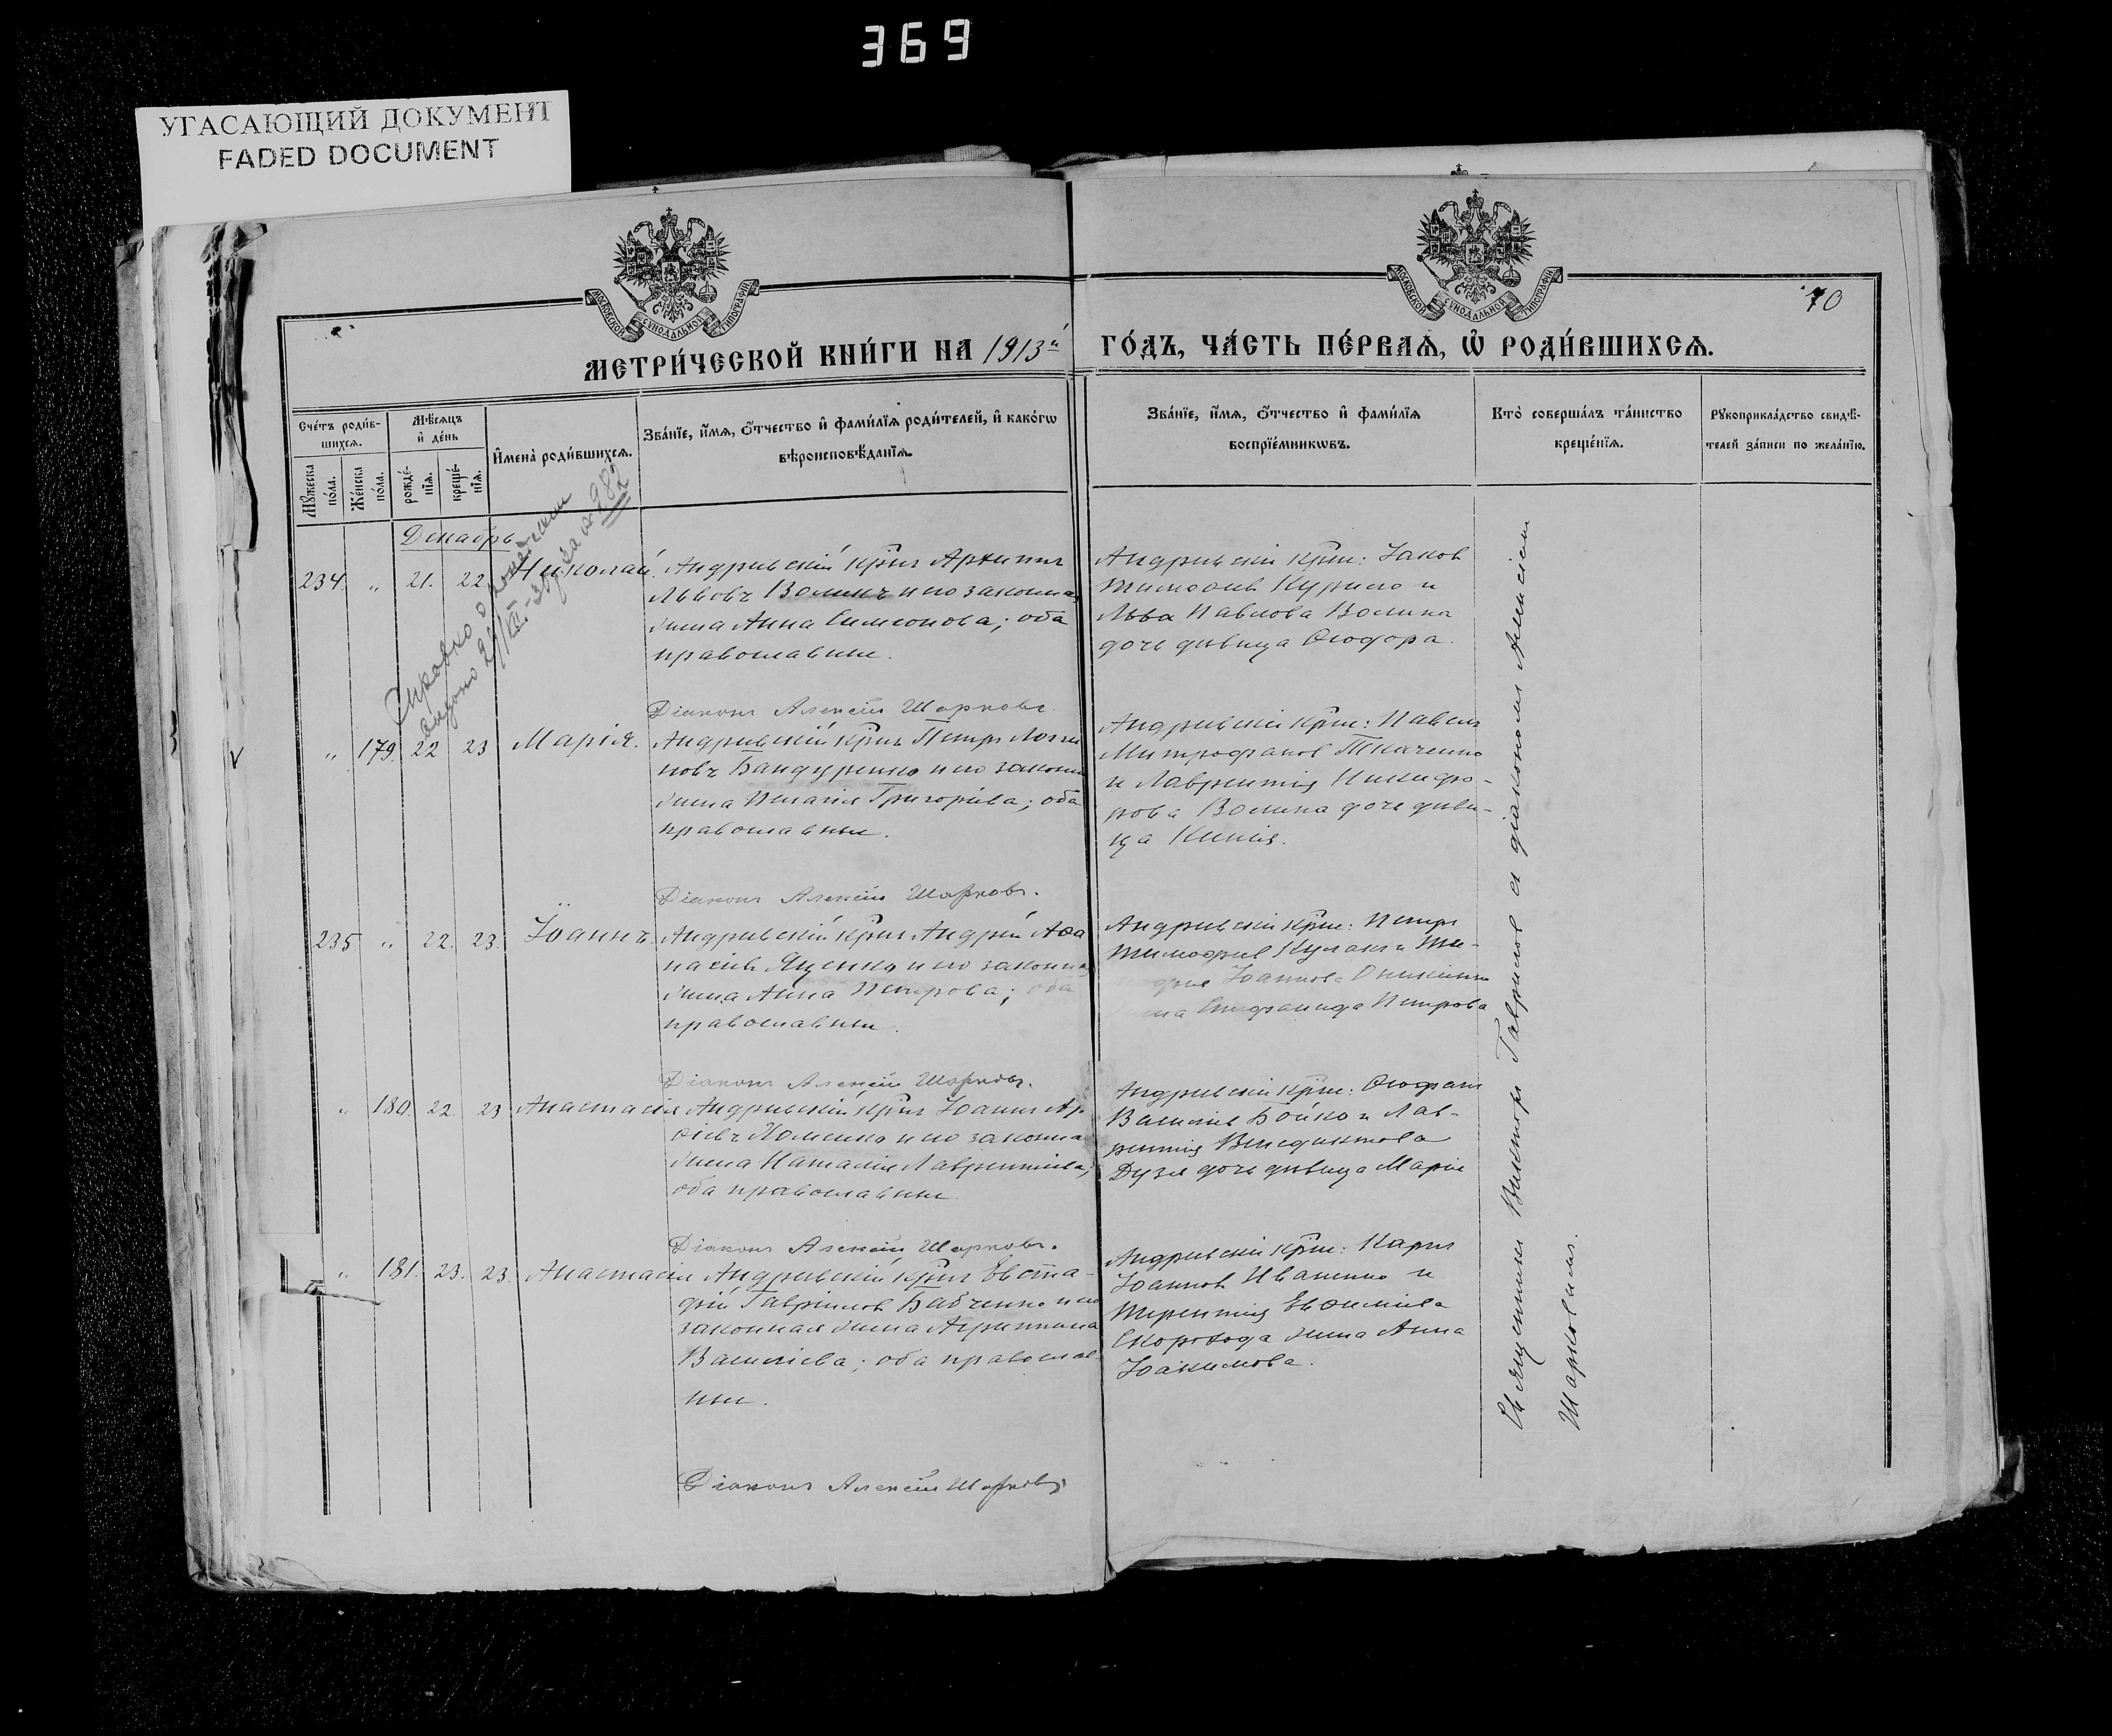 369
УГАСАЮЩИЙ ДОКУМЕНТ
FADED DOCUMENT
МОСКОВСКОЙ СУНОДАЛЬНОЙ ТИПОГРАФІИ
МОСКОВСКОЙ СУНОДАЛЬНОЙ ТИПОГРАФІИ
70
МЕТРИ́ЧЕСКОЙ КНИ́ГИ НА 1913й ГО́ДЪ, ЧА́СТЬ ПЕ́РВАѦ, Ѡ҆ РОДИ́ВШИХСѦ.
Сче́тъ роди́в-
шихсѧ.
Мѣ́сѧцъ
и҆ де́нь
Мꙋ́жеска
по́ла.
Же́нска
по́ла.
рожде́-
нїѧ.
креще́-
нїѧ.
И҆мена̀ роди́вшихсѧ.
Зва́нїе, и҆́мѧ, ѻ҆́тчество и҆ фами́лїѧ роди́телей, и҆ како́гѡ
вѣроисповѣ́данїѧ.
Зва́нїе, и҆́мѧ, ѻ҆́тчество и҆ фами́лїѧ
воспрїе́мникѡвъ.
Кто̀ соверша́лъ та́инство
креще́нїѧ.
Рꙋкоприкла́дство свидѣ́-
телей за́писи по жела́нїю.
Декабрь
234. „ 21. 22. Николай. Андреевскій крнъ Архипъ
Львовъ Воликъ и его законная
жена Анна Симеонова; оба
православные.
Діаконъ Алексій Шарковъ.
Андреевскій крнъ: Іаков
Тимоѳеев Курило и
Льва Павлова Волика
дочь дѣвица Ѳеодора.
„ 179. 22 23 Марія. Андреевскій крнъ Петръ Логги
новъ Бандуренко и его законн
жена Пелагія Григоріева; оба
православные.
Діаконъ Алексій Шарковъ.
Андреевскій крнъ: Павелъ
Митрофанов Ткаченко
и Лаврентія Никифо-
рова Волика дочь дѣви-
ца Ксенія.
235 „ 22. 23. Іоаннъ. Андреевскій крнъ Андрей Аѳа
насіевъ Яценко и его законная
жена Анна Петрова; оба
православные.
Діаконъ Алексій Шарковъ.
Андреевскій крнъ: Петръ
Тимоѳеев Кулакъ и Ти-
Іоаннова
жена Епифанида Петрова
„ 180. 22. 23 Анастасія Андреевскій крнъ Іоаннъ
Хоменко и его законная
жена Наталія Лаврентіева;
оба православные.
Діаконъ Алексій Шарковъ.
Андреевскій крнъ: Ѳеофанъ
Васильев Бойко и Лав-
рентія Венедиктова
Дузя дочь дѣвица Марія
„ 181. 23. 23. Анастасія Андреевскій крнъ Евста-
фій Гавріилов Бабченко и его
законная жена Агрипина
Васильева; оба православ-
ные.
Діаконъ Алексій Шарковъ
Андреевскій крнъ: Карпъ
Іоаннов Иваненко и
Терентія Евѳиміева
Скорохода жена Анна
Іоакимова.
Священник Виктор Гаврилов с діаконом Алексіем
Шарковымъ.